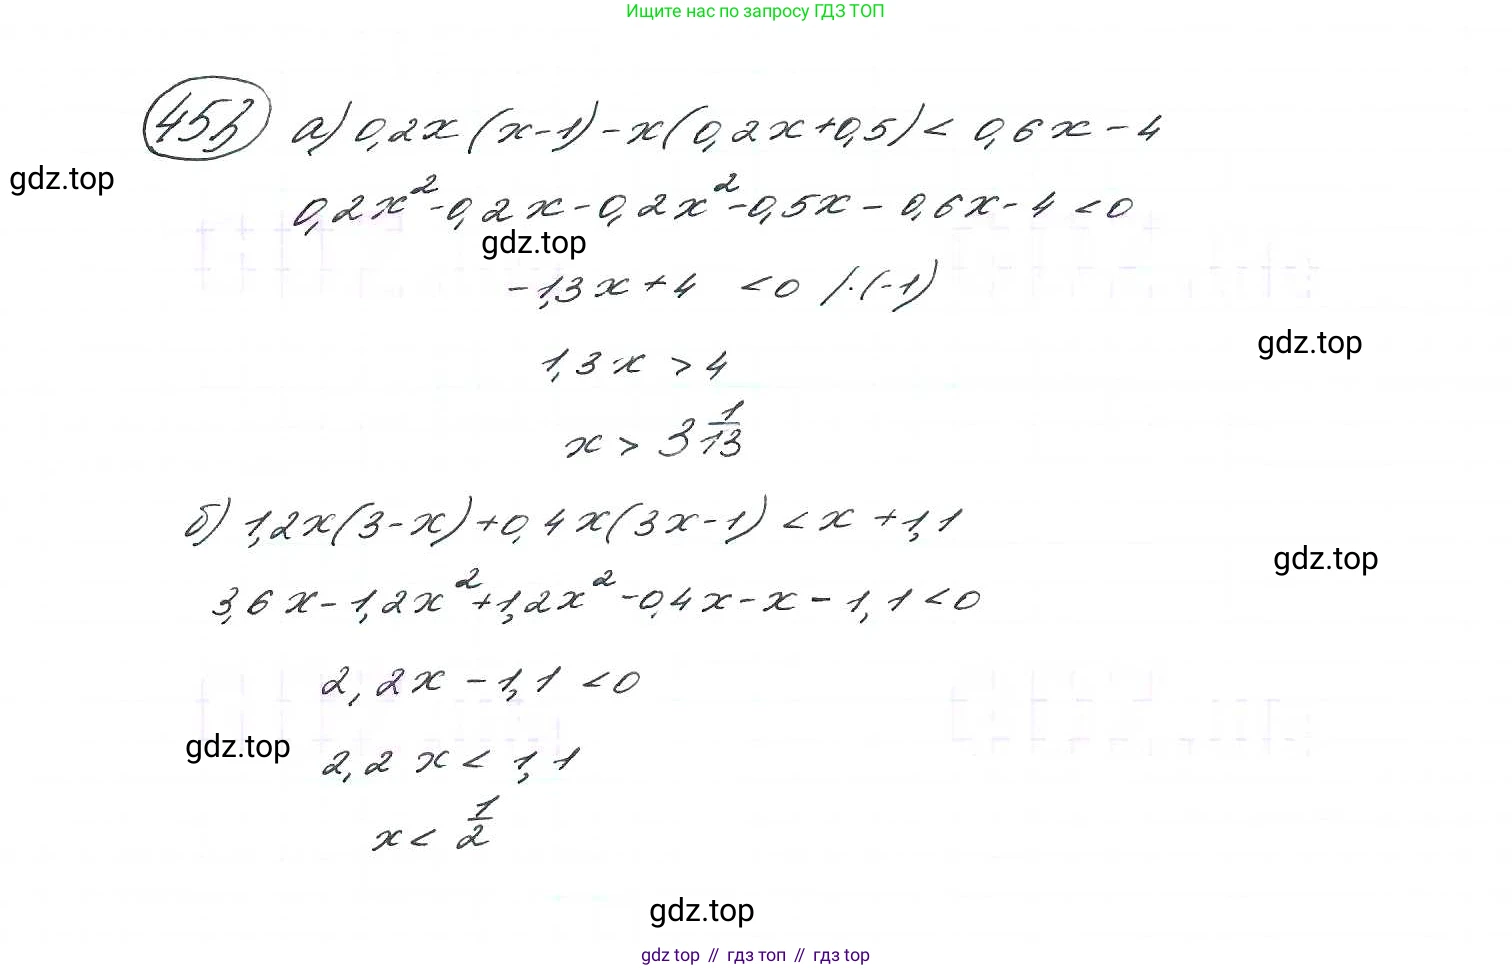 Ищите нас по запросу ГДЗ ТОП
453 а) 0,2x(x-1)-x(0,2x+0,5)< 0,6x-4
gdz.top
0,2x²-0,2x-0,2x²-0,5x-0,6x-4<0
gdz.top
-1,3x+4 <0 /·(-1)
gdz.top
1,3x >4
x > 3 1/13
б) 1,2x(3-x)+0,4x(3x-1)<x+1,1
gdz.top
3,6x-1,2x²+1,2x²-0,4x-x-1,1<0
2,2x-1,1<0
gdz.top
2,2x<1,1
x< 1/2
gdz.top
gdz top // гдз топ // гдз top